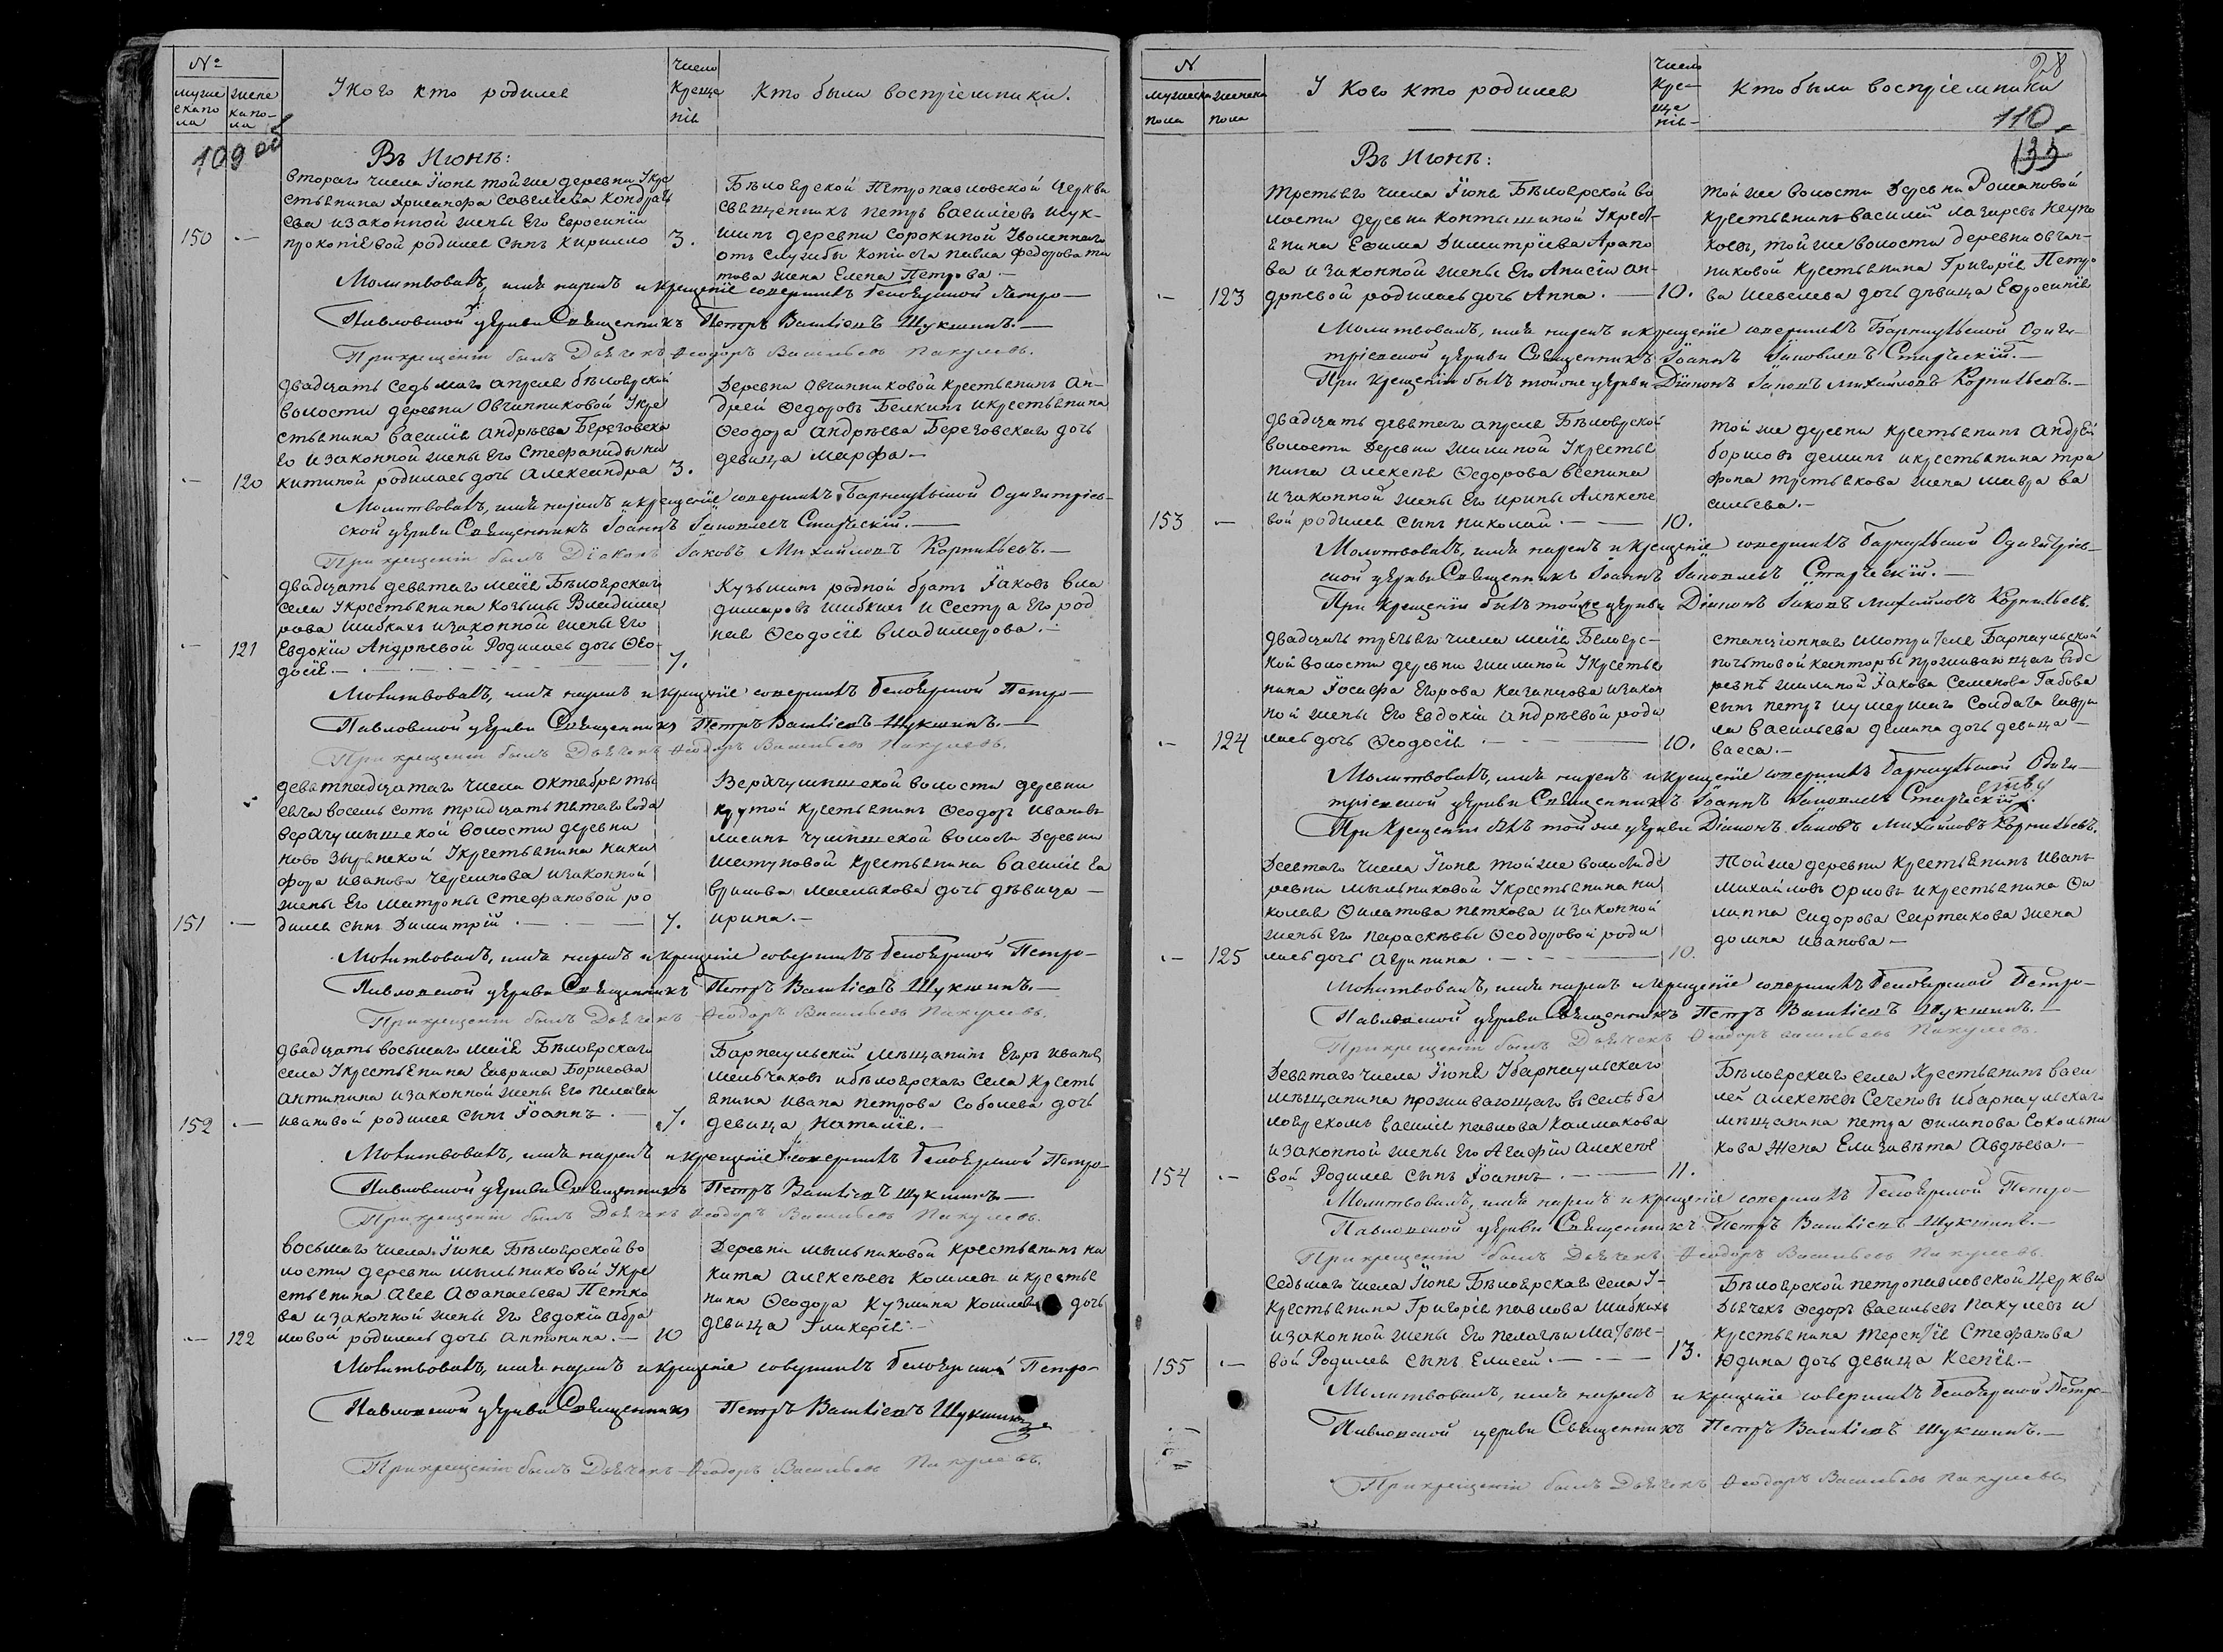 №
мужескаго пола
женскаго пола
У кого кто родился
Число Крещенія
Кто были воспріемники.
109
Въ Июнѣ:
втораго числа Іюня той же деревни У кре
стьянина Савельева Кондрать
ева и законной жены Его Евросиніи
150 — прокопіевой родился сынъ Кирилло 3.
Бѣлоярской Петропавловской Церкви
священникъ петръ василіевъ шук-
шинъ деревни сорокиной Уволеннаго
отъ службы копіиста павла федорова
жена Елена Петрова.—
Молитвовалъ, имя нарекъ и крещеніе совершилъ Белоярской Петро-
Павловской церкви Священникъ Петръ Василіевъ Шукшинъ.—
При крещеніи былъ Дьячекъ Ѳеодоръ Васильевъ Пакулевъ.
двадцать седьмаго апреля бѣлоярской
волости деревни Овчинниковой У кре
стьянина василія андрѣева Береговска
го и законной жены Его Стефаниды ни
— 120 китиной родилась дочь александра 3.
деревни овчинниковой крестьянинъ ан-
дрей Ѳедоровъ Белкинъ и крестьянина
Ѳеодора андрѣева Береговскаго дочь
девица марфа—
Молитвовалъ, имя нарекъ и крещеніе совершилъ Барнаульской Одигитріев-
ской церкви Священникъ Іоаннъ Іаковлевъ Старческій.—
При крещеніи былъ Діаконъ Іаковъ Михайловъ Корнильевъ.—
двадцать девятаго маія Бѣлоярскаго
села У крестьянина козьмы Владими
рова шибкихъ и законной жены его
— 121 Евдокіи Андрѣевой Родилась дочь Ѳео-
досія.— 7.
Кузьминъ родной братъ Іаковъ вла
димировъ шибкихъ и сестра Его род
ная Ѳеодосія владимерова.—
Молитвовалъ, имя нарекъ и крещеніе совершилъ Белоярской Петро-
Павловской церкви Священникъ Петръ Василіевъ Шукшинъ.—
При крещеніи былъ Дьячекъ Ѳеодоръ Васильевъ Пакулевъ.
девятнадцатаго числа октября тыс
яча восемь сотъ тридцать пятаго года
верхчумышской волости деревни
ново зырянской У крестьянина ники
фора иванова черемнова и законной
жены Его матроны Стефановой ро
151 — дился сынъ Димитрій 7.
Верхчумышской волости деревни
крутой крестьянинъ Ѳеодоръ ивановъ
чумышской волости Деревни
шатуновой крестьянина василія га
врилова дочь дѣвица—
ирина.—
Молитвовалъ, имя нарекъ и крещеніе совершилъ Белоярской Петро-
Павловской церкви Священникъ Петръ Василіевъ Шукшинъ.—
При крещеніи былъ Дьячекъ Ѳеодоръ Васильевъ Пакулевъ.
двадцать восьмаго маія Бѣлоярскаго
села У крестьянина гаврила Борисова
антипина и законной жены Его пелагеи
152 — ивановой родился сынъ Іоаннъ.— 7.
Барнаульскій мѣщанинъ Егоръ ивановъ
мельчаковъ и бѣлоярскаго села кресть
янина ивана петрова соболева дочь
девица Наталія.—
Молитвовалъ, имя нарекъ и крещеніе совершилъ Белоярской Петро-
Павловской церкви Священникъ Петръ Василіевъ Шукшинъ—
При крещеніи былъ Дьячекъ Ѳеодоръ Васильевъ Пакулевъ.
восьмаго числа Іюня Бѣлоярской во
лости деревни мыльниковой У кре
стьянина Агея Афанасьева Петко
ва и законной жены Его Евдокіи абра
— 122 мовой родилась дочь антонина.— 10
Деревни мыльниковой крестьянинъ ни
кита алексѣевъ кошлевъ и крестья
нина Ѳеодора Кузмина кошлева дочь
девица Гликерія—
Молитвовалъ, имя нарекъ и крещеніе совершилъ Белоярской Петро-
Павловской церкви Священникъ Петръ Василіевъ Шукшинъ
При крещеніи былъ Дьячекъ Ѳеодоръ Васильевъ Пакулевъ.
28
№
мужеска пола
женска пола
У кого кто родился
Число Кре-ще-нія
Кто были воспріемники
110
135
Въ Июнѣ:
третьяго числа Іюня Бѣлоярской во
лости деревни контышиной У крест-
янина Ефима Димитріева Арапо
ва и законной жены Его Анисіи ан-
— 123 дрѣевой родилась дочь Анна.— 10.
той же волости деревни Романовой
крестьянинъ василей лазаревъ неупо
коевъ, той же волости деревни овчин-
никовой крестьянина Григорія Петро
ва шевелева дочь дѣвица Ефросинія
Молитвовалъ, имя нарекъ и крещеніе совершилъ Барнаульской Одиги-
тріевской церкви Священникъ Іоаннъ Іаковлевъ Старческій.—
При крещеніи былъ той же церкви Діаконъ Іаковъ Михайловъ Корнильевъ.—
двадцать девятаго апреля Бѣлоярской
волости деревни жилиной У крестья
нина алексѣя Ѳедорова
и законной жены Его ирины Алѣксѣе
153 — вой родился сынъ николай.— 10.
той же деревни крестьянинъ андрей
борисовъ деминъ и крестьянина
третьякова жена мавра ва
сильева.—
Молитвовалъ, имя нарекъ и крещеніе совершилъ Барнаульской Одигитріев-
ской церкви Священникъ Іоаннъ Іаковлевъ Старческій.—
При крещеніи былъ той же церкви Діаконъ Іаковъ Михайловъ Корнильевъ.
двадцать третьяго числа маія Белояр-
кой волости деревни жилиной У крестья
нина Іосифа Егорова казанцова и закон
ной жены Его Евдокіи андрѣевой роди
— 124 лась дочь Ѳеодосія.— 10.
станціоннаго смотрителя Барнаульской
почтовой канторы проживающаго въ де
ревнѣ жилиной Іакова Семенова Габова
сынъ петръ и умершаго солдата гаври
ла васильева демина дочь девица—
васса.—
Молитвовалъ, имя нарекъ и крещеніе совершилъ Барнаульской Одиги-
тріевской церкви Священникъ Іоаннъ Іаковлевъ Старческій.
При крещеніи былъ той же церкви Діаконъ Іаковъ Михайловъ Корнильевъ.
Девятаго числа Іюня той же волости де
ревни мыльниковой У крестьянина ни
колая Филатова пяткова и законной
жены Его параскевы Ѳеодоровой роди
— 125 лась дочь Агрипина.— 10.
Той же деревни крестьянинъ иванъ
михайловъ орловъ и крестьянина Фи
липпа сидорова сартакова жена
домна иванова—
Молитвовалъ, имя нарекъ и крещеніе совершилъ Белоярской Петро-
Павловской церкви Священникъ Петръ Василіевъ Шукшинъ.—
При крещеніи былъ Дьячекъ Ѳеодоръ васильевъ Пакулевъ.
Девятаго числа Іюня У барнаульскаго
мѣщанина проживающаго въ селѣ бе
лоярскомъ василія павлова калмакова
и законной жены Его Агафіи алексѣе
154 — вой Родился сынъ Іоаннъ.— 11.
Бѣлоярскаго села крестьянинъ васи
лей алексѣевъ Сеченовъ и барнаульскаго
мѣщанина петра филипова сокольни
кова жена Елизавѣта Авдѣева.—
Молитвовалъ, имя нарекъ и крещеніе совершилъ Белоярской Петро-
Павловской церкви Священникъ Петръ Василіевъ Шукшинъ.—
При крещеніи былъ Дьячекъ Ѳеодоръ Васильевъ Пакулевъ.
седьмаго числа Іюня Бѣлоярскаго села У-
крестьянина Григорія павлова шибкихъ
и законной жены Его пелагеи Матвѣе-
155 — вой Родился сынъ Елисей.— 13.
Бѣлоярской петропавловской Церкви
Дьячекъ Ѳедоръ васильевъ пакулевъ и
крестьянина терентія Стефанова
Юдина дочь девица Ксенія.—
Молитвовалъ, имя нарекъ и крещеніе совершилъ Белоярской Петро-
Павловской церкви Священникъ Петръ Василіевъ Шукшинъ.—
При крещеніи былъ Дьячекъ Ѳеодоръ Васильевъ Пакулевъ